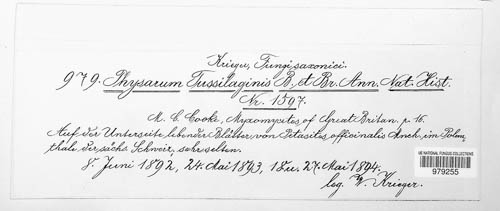 Krieger, Fungi saxonici.
979. Physarum Tussilaginis B. et Br. Ann. Nat. Hist.
Nr. 1597.
M. C. Cooke, Myxomycetes of Great Britan. p. 16.
Auf der Unterseite lebender Blätter von Petasites officinalis Mnch. im Polenz
thale der sächs. Schweiz, sehr selten.
8. Juni 1892, 24. Mai 1893, 1. u. 27. Mai 1894.
leg. W. Krieger.
US NATIONAL FUNGUS COLLECTIONS
979255